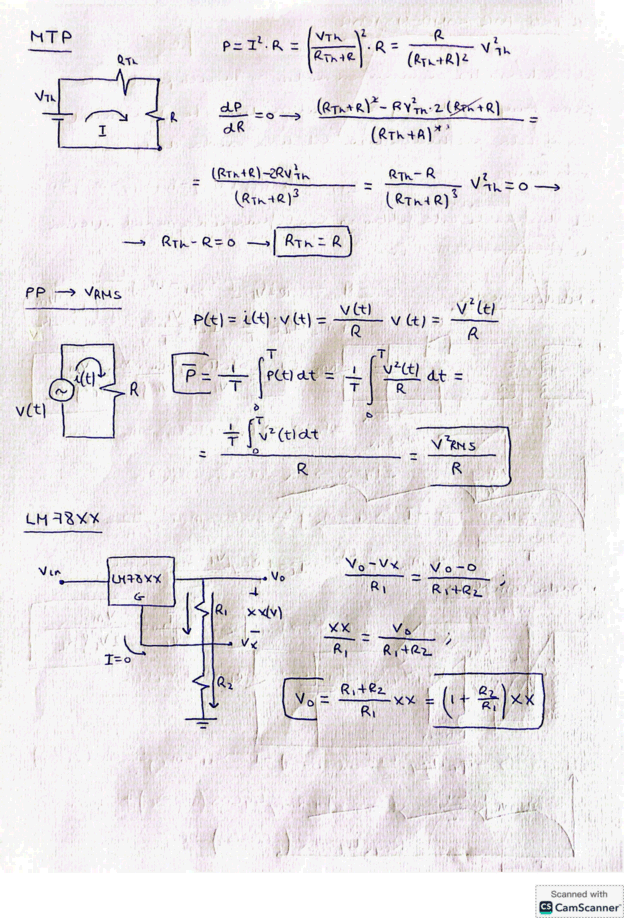 MTP
P = I² · R = (V_Th / (R_Th + R))² · R = R / (R_Th + R)² V²_Th
R_Th
V_Th
I
R
dP/dR = 0 → ((R_Th + R)² − RV²_Th · 2(R_Th + R)) / (R_Th + R)⁴ =
= ((R_Th + R) − 2RV²_Th) / (R_Th + R)³ = (R_Th − R) / (R_Th + R)³ V²_Th = 0 →
→ R_Th − R = 0 → R_Th = R
PP → V_RMS
P(t) = i(t) · v(t) = V(t)/R V(t) = V²(t)/R
i(t)
R
V(t)
P̅ = 1/T ∫₀ᵀ P(t) dt = 1/T ∫₀ᵀ V²(t)/R dt =
= (1/T ∫₀ᵀ V²(t) dt) / R = V²_RMS / R
LM78XX
Vin
LM78XX
G
Vo
R1
+
XX(V)
−
Vx
I=0
R2
(Vo − Vx) / R1 = (Vo − 0) / (R1 + R2) ;
XX / R1 = Vo / (R1 + R2) ;
Vo = (R1 + R2) / R1 XX = (1 + R2/R1) XX
Scanned with
CS CamScanner